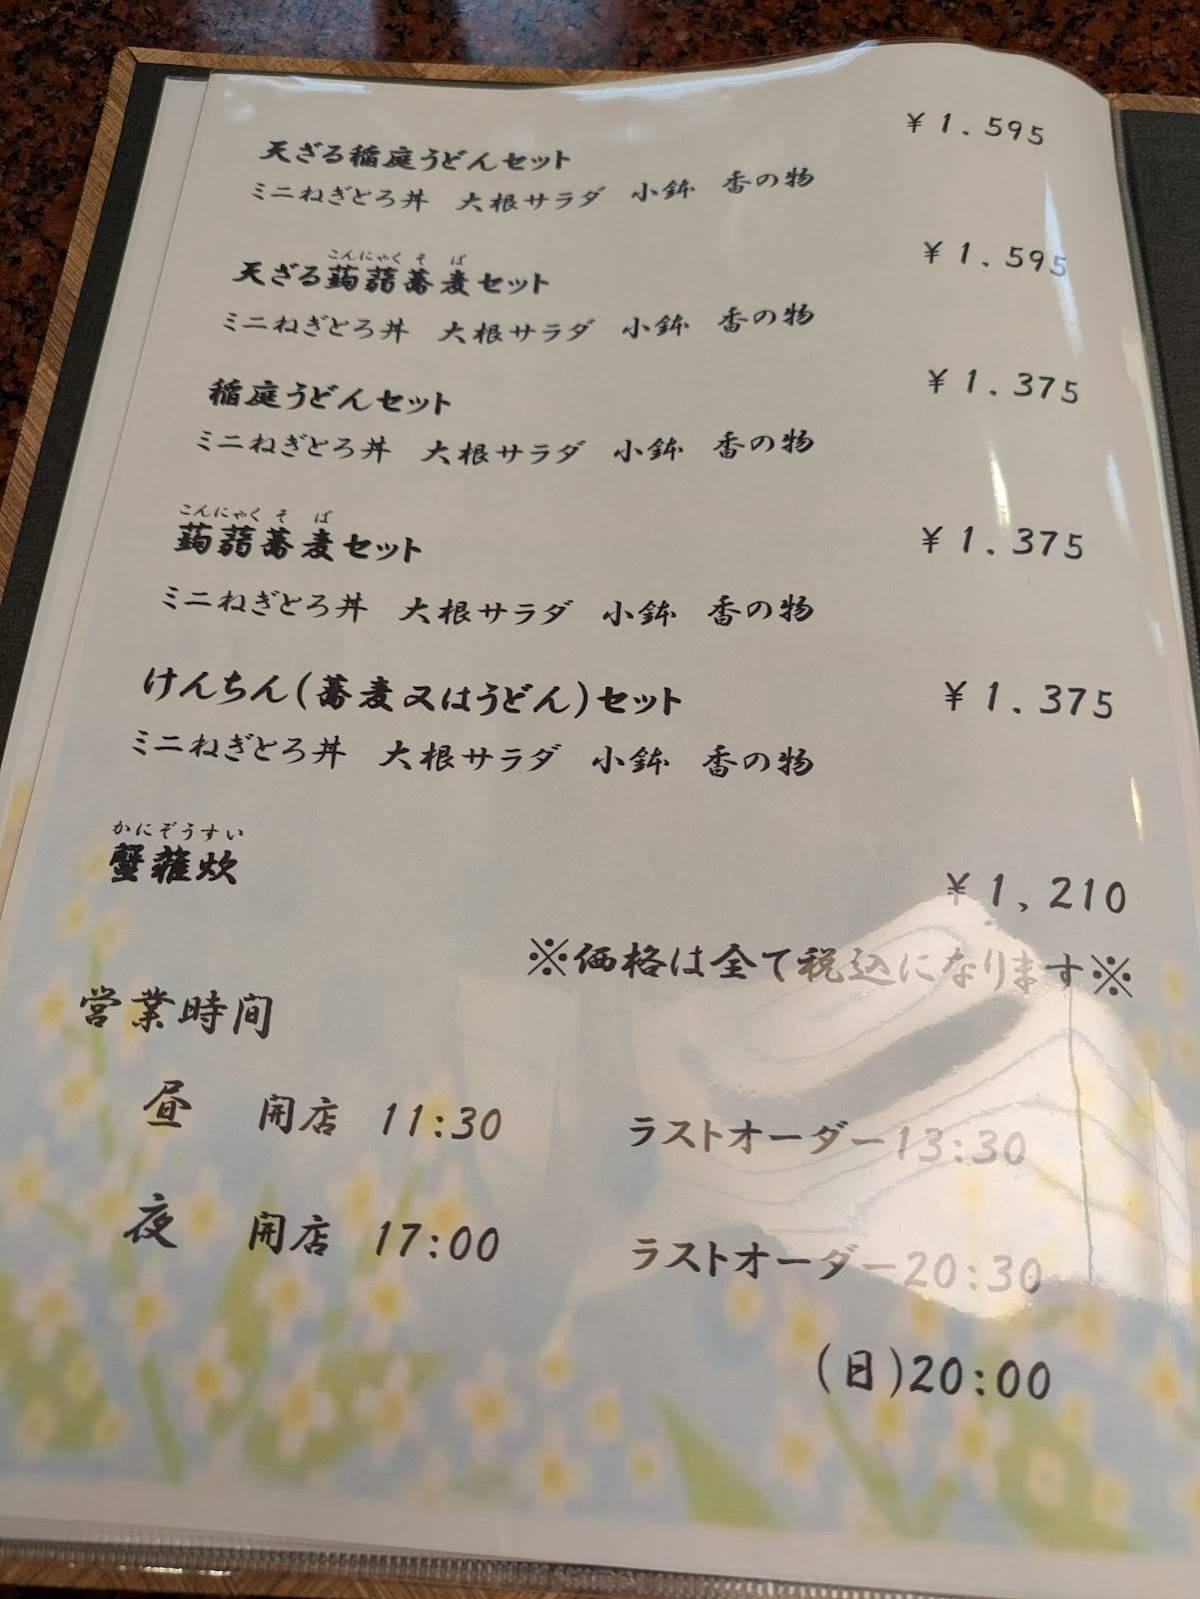 天ざる稲庭うどんセット ￥1.595
ミニねぎとろ丼 大根サラダ 小鉢 香の物
こんにゃくそば
天ざる蒟蒻蕎麦セット ￥1.595
ミニねぎとろ丼 大根サラダ 小鉢 香の物
稲庭うどんセット ￥1.375
ミニねぎとろ丼 大根サラダ 小鉢 香の物
こんにゃくそば
蒟蒻蕎麦セット ￥1.375
ミニねぎとろ丼 大根サラダ 小鉢 香の物
けんちん(蕎麦又はうどん)セット ￥1.375
ミニねぎとろ丼 大根サラダ 小鉢 香の物
かにぞうすい
蟹雑炊 ￥1,210
※価格は全て税込になります※
営業時間
昼 開店 11:30 ラストオーダー13:30
夜 開店 17:00 ラストオーダー20:30
(日)20:00